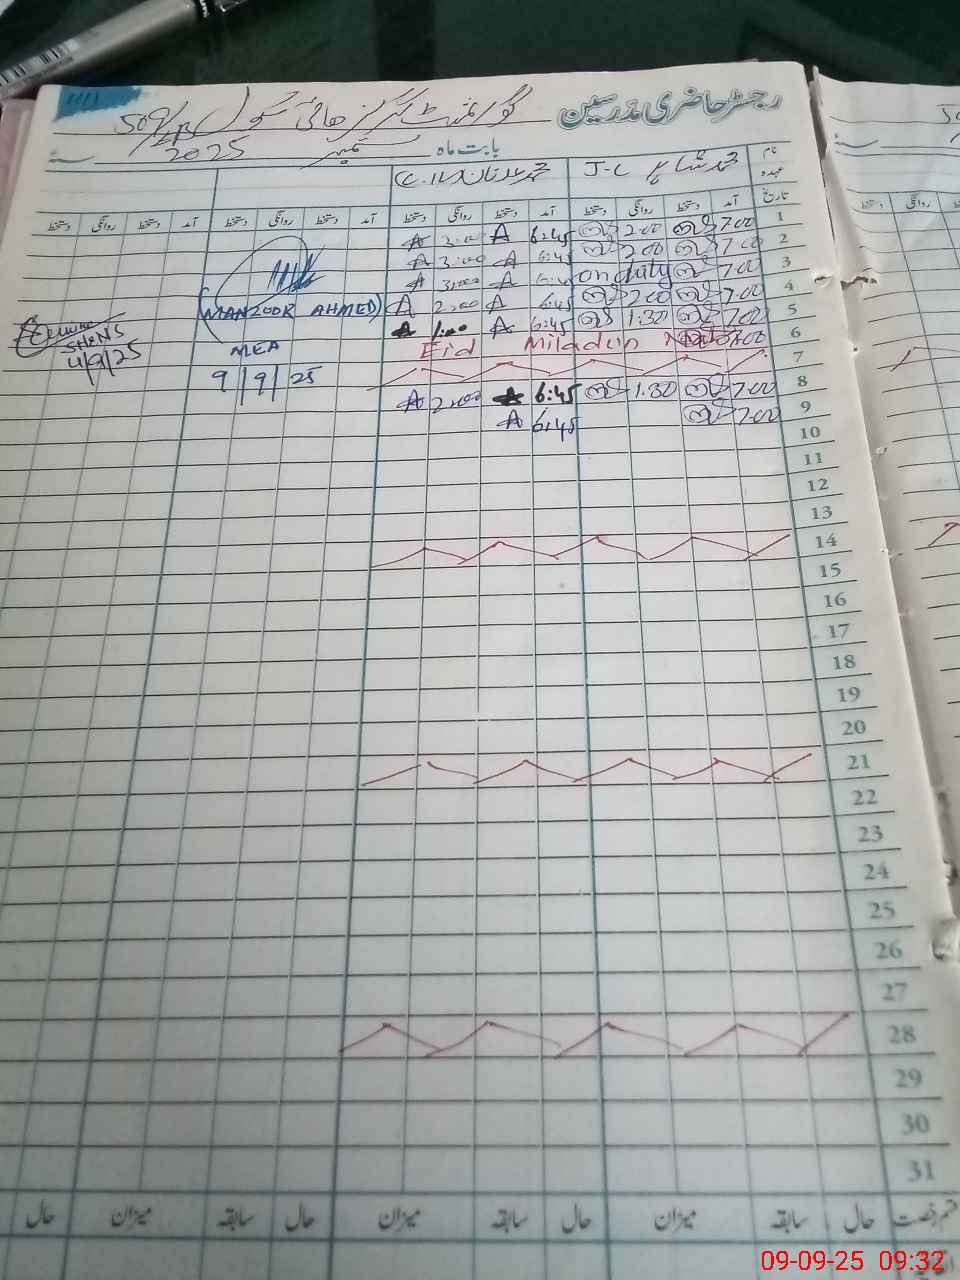 رجسٹر حاضری مدرسین گورنمنٹ گرلز ہائی سکول 509/EB
بابت ماہ ستمبر 2025 سنہ
نام
عہدہ محمد J-C محمد عدنان
تاریخ آمد دستخط روانگی دستخط آمد دستخط روانگی دستخط آمد دستخط روانگی دستخط آمد دستخط روانگی دستخط
1 7:00 2:00 6:45 A 2:00 A
2 7:00 2:00 6:45 A 3:00 A
3 7:00 on duty 6:45 A 3:00 A
4 7:00 2:00 6:45 A 2:00 A
(MANZOOR AHMED)
5 7:00 1:30 6:45 A 1:00 A
6 7:00 Eid Miladun
MEA
SHNS
4/9/25
7
9/9/25
8 7:00 1:30 6:45 A 2:00 A
9 7:00 6:45 A
10
11
12
13
14
15
16
17
18
19
20
21
22
23
24
25
26
27
28
29
30
31
قسم رخصت حال سابقہ میزان حال سابقہ میزان حال سابقہ میزان حال
09-09-25 09:32